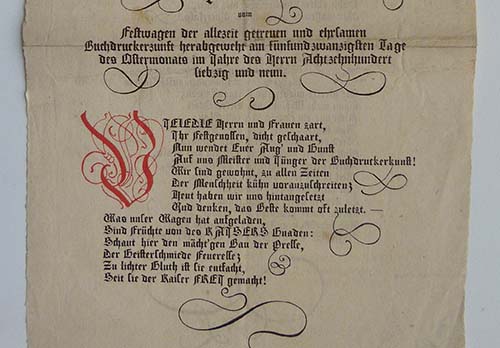 vom
Festwagen der allezeit getreuen und ehrsamen
Buchdruckerzunft herabgeweht am fünfundzwanzigsten Tage
des Ostermonats im Jahre des Herrn Achtzehnhundert
siebzig und neun.
VIELEDLE Herrn und Frauen zart,
Ihr Festgenossen, dicht geschaart,
Nun wendet Euer Aug' und Gunst
Auf uns Meister und Jünger der Buchdruckerkunst!
Wir sind gewohnt, zu allen Zeiten
Der Menschheit kühn voranzuschreiten;
Heut haben wir uns hintangesetzt
Und denken, das Beste kommt oft zuletzt. —
Was unser Wagen hat aufgeladen,
Sind Früchte von des KAISERS Gnaden:
Schaut hier den mächt'gen Bau der Presse,
Der Geisterschmiede Feueresse;
Zu lichter Gluth ist sie entfacht,
Seit sie der Kaiser FREI gemacht!